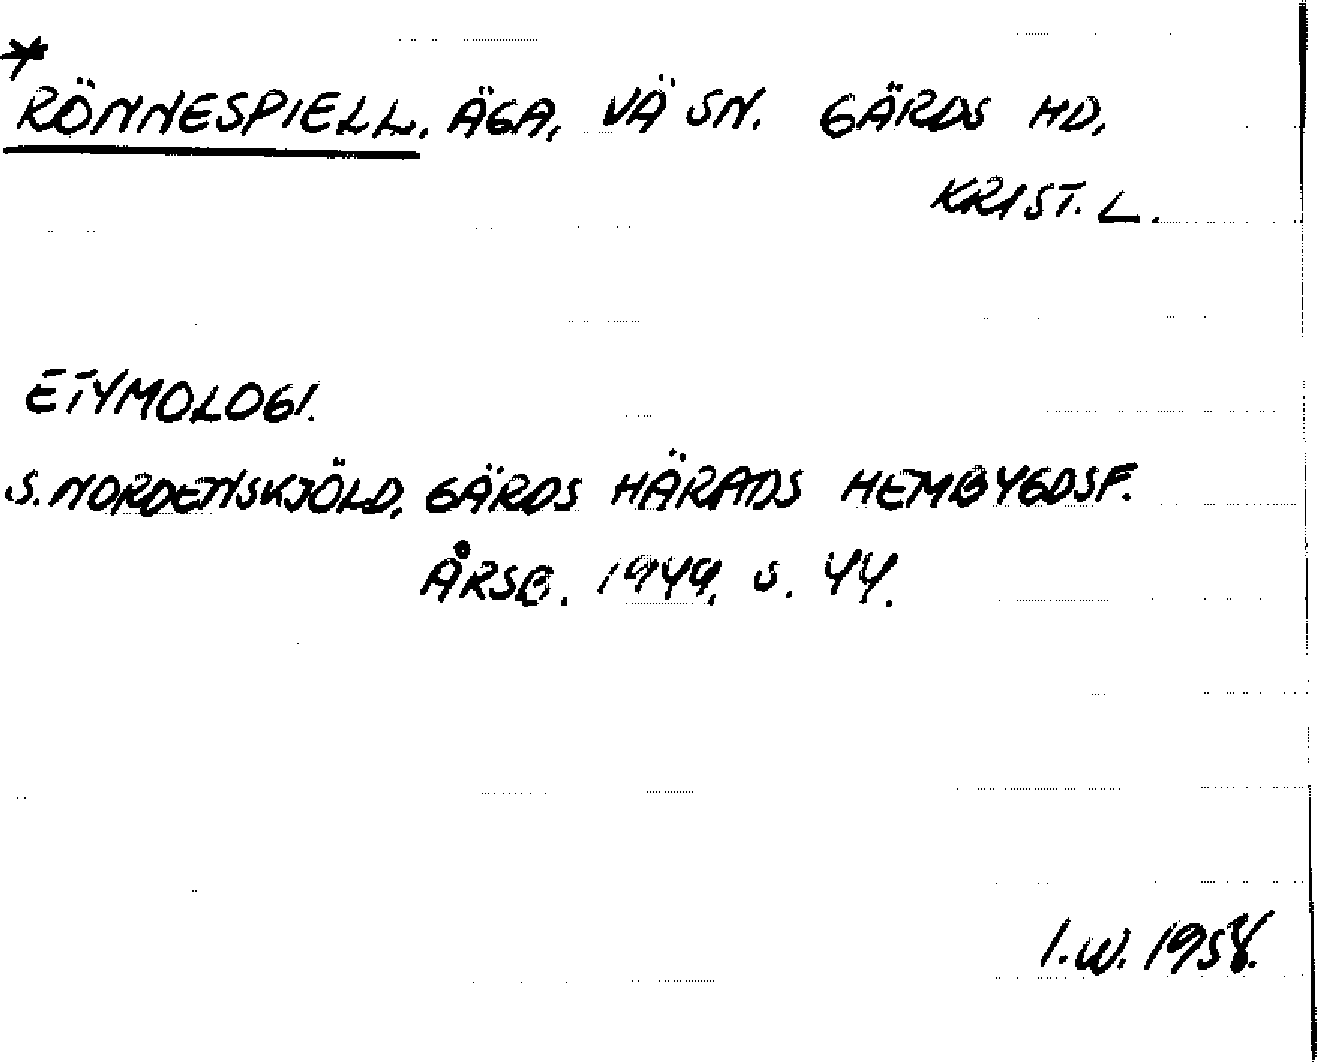 *
RÖNNESPIELL. ÄGA, VÄ SN. GÄRDS HD.
KRIST. L.
ETYMOLOGI.
S. NORDENSKJÖLD, GÄRDS HÄRADS HEMBYGDSF.
ÅRSB. 1949, s. 44.
I.W. 1958.